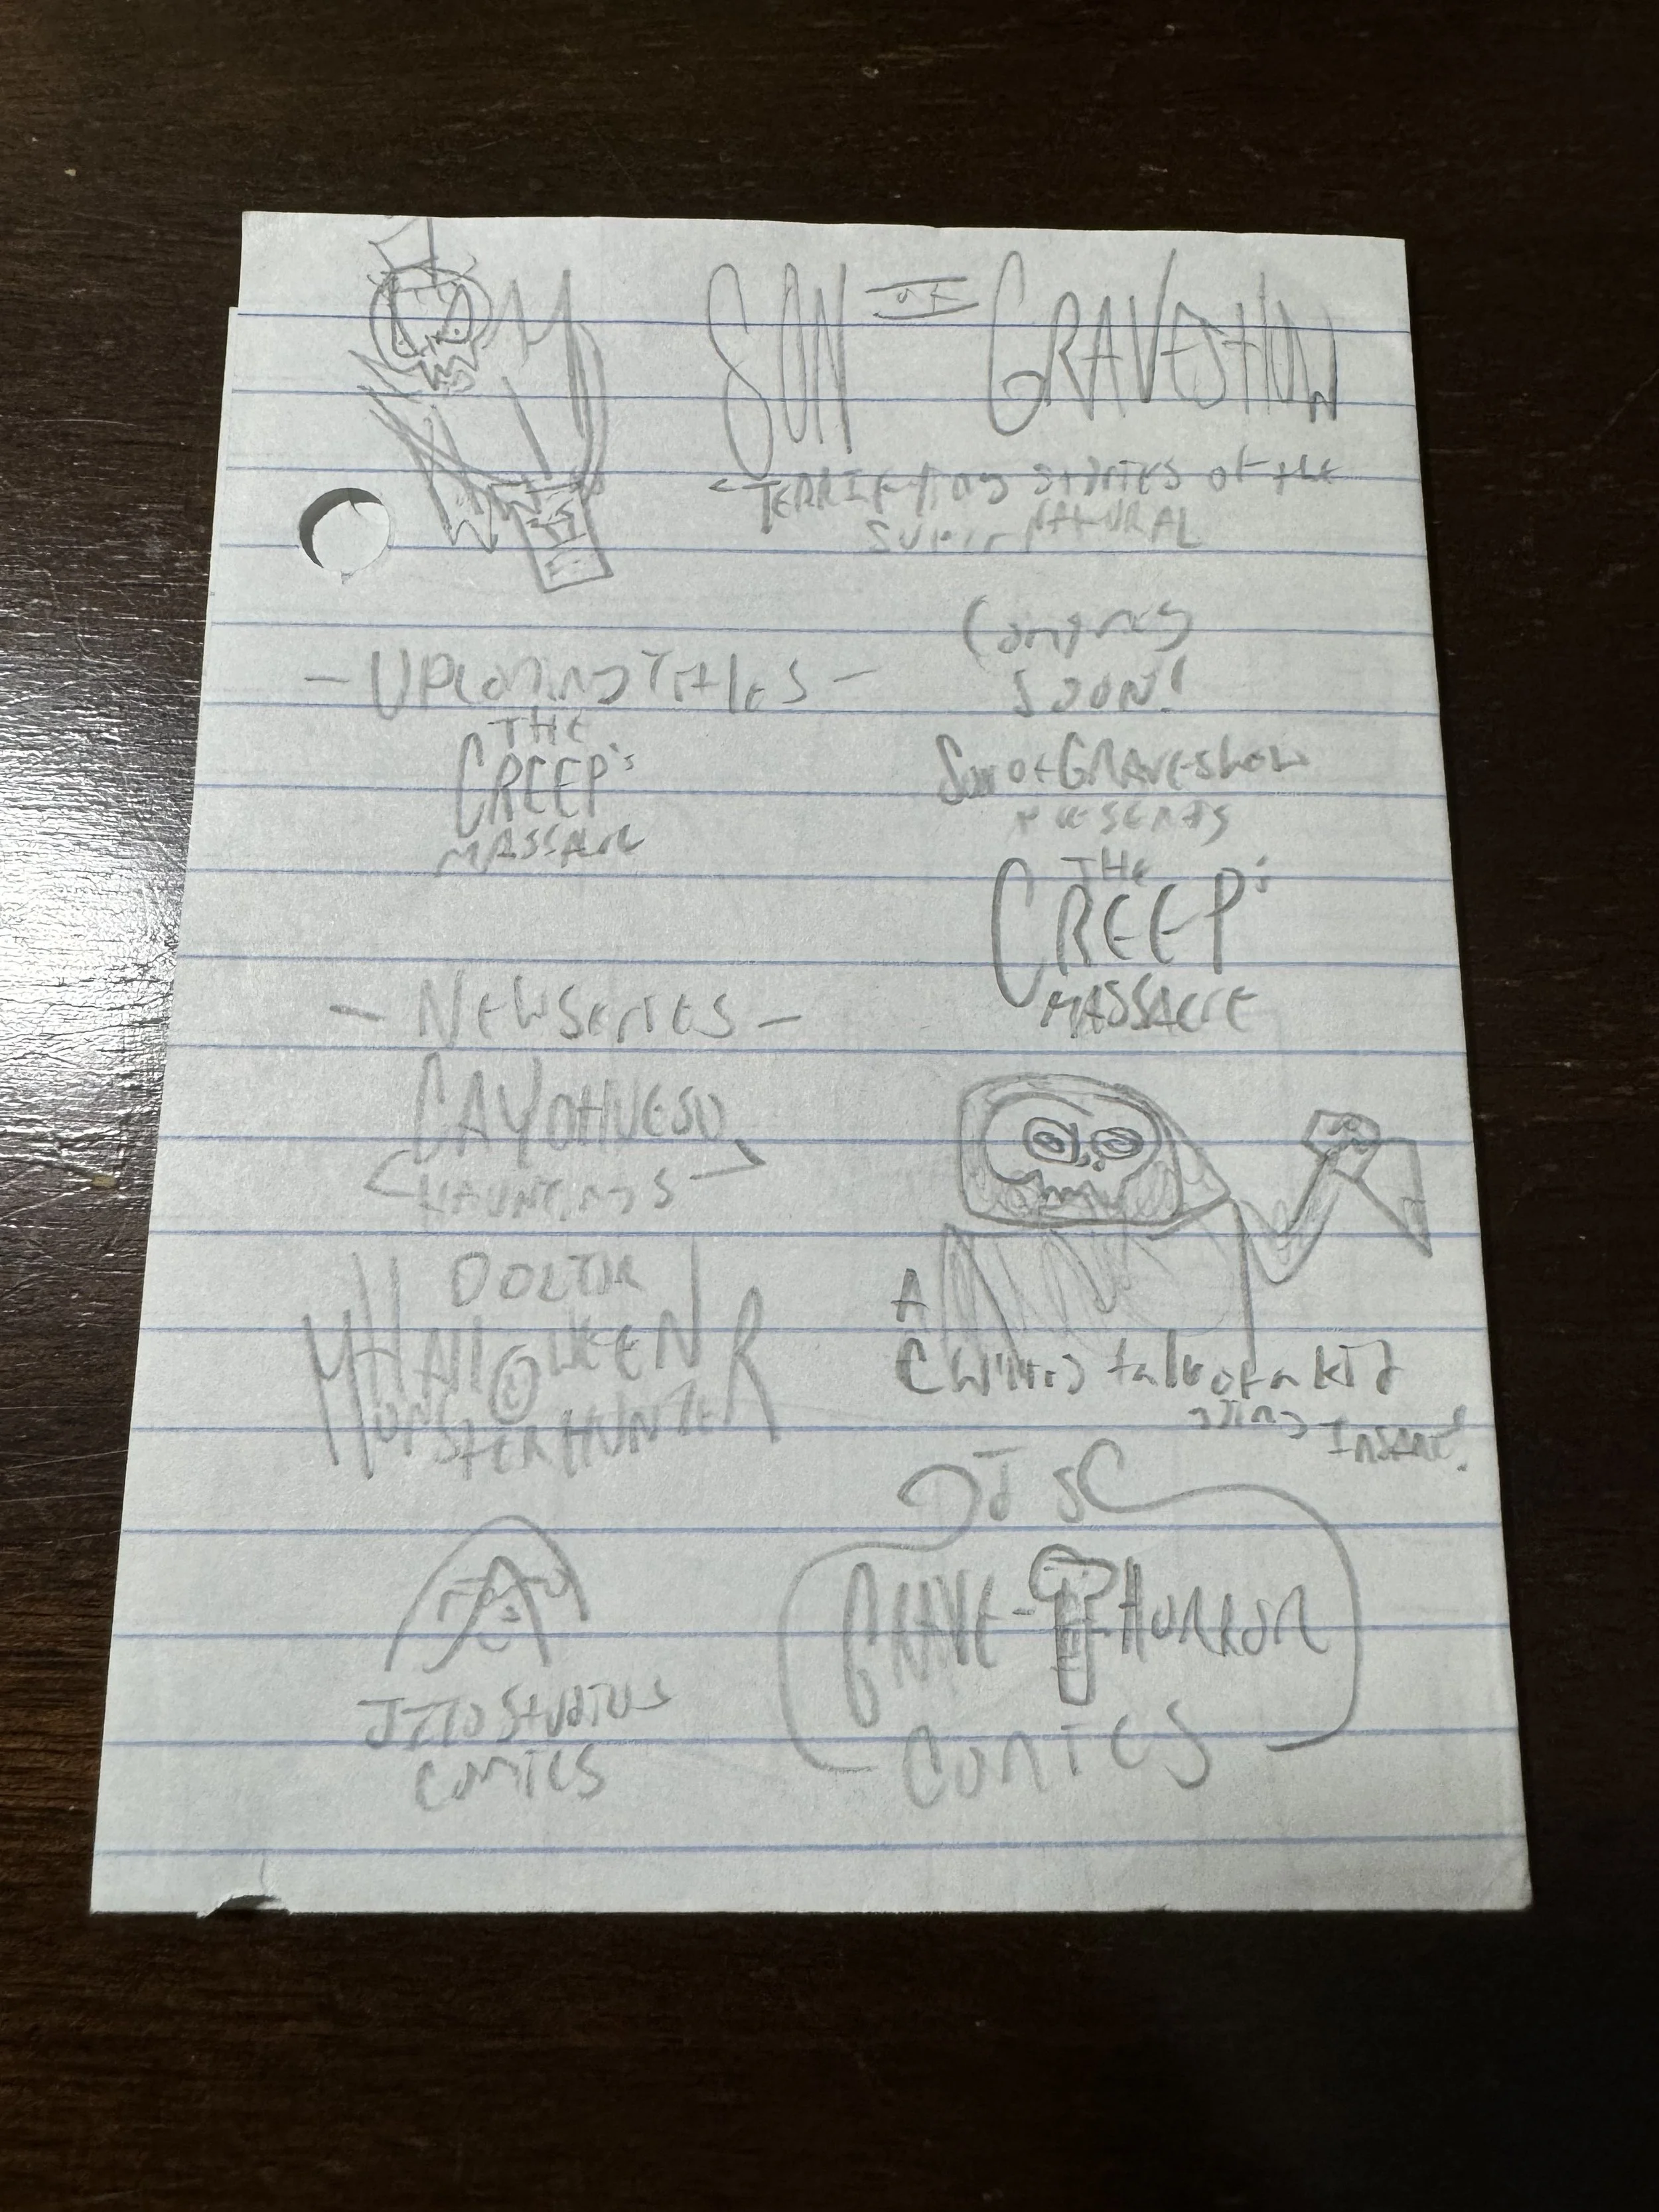 SON OF GRAVESHOW
TERRIFYING STORIES OF THE
SUPERNATURAL
- UPCOMING TITLES -
THE
CREEP's
MASSACRE
- NEW SERIES -
CAYOHUESO
HAUNTINGS
DOCTOR
HALLOWEEN
MONSTER HUNTER
JZTO STUDIOS
COMICS
COMING
SOON!
Son of GRAVESHOW
PRESENTS
THE
CREEP's
MASSACRE
A
CHILLING tale of a kid
going
INSANE!
JSC
GRAVE-HORROR
COMICS